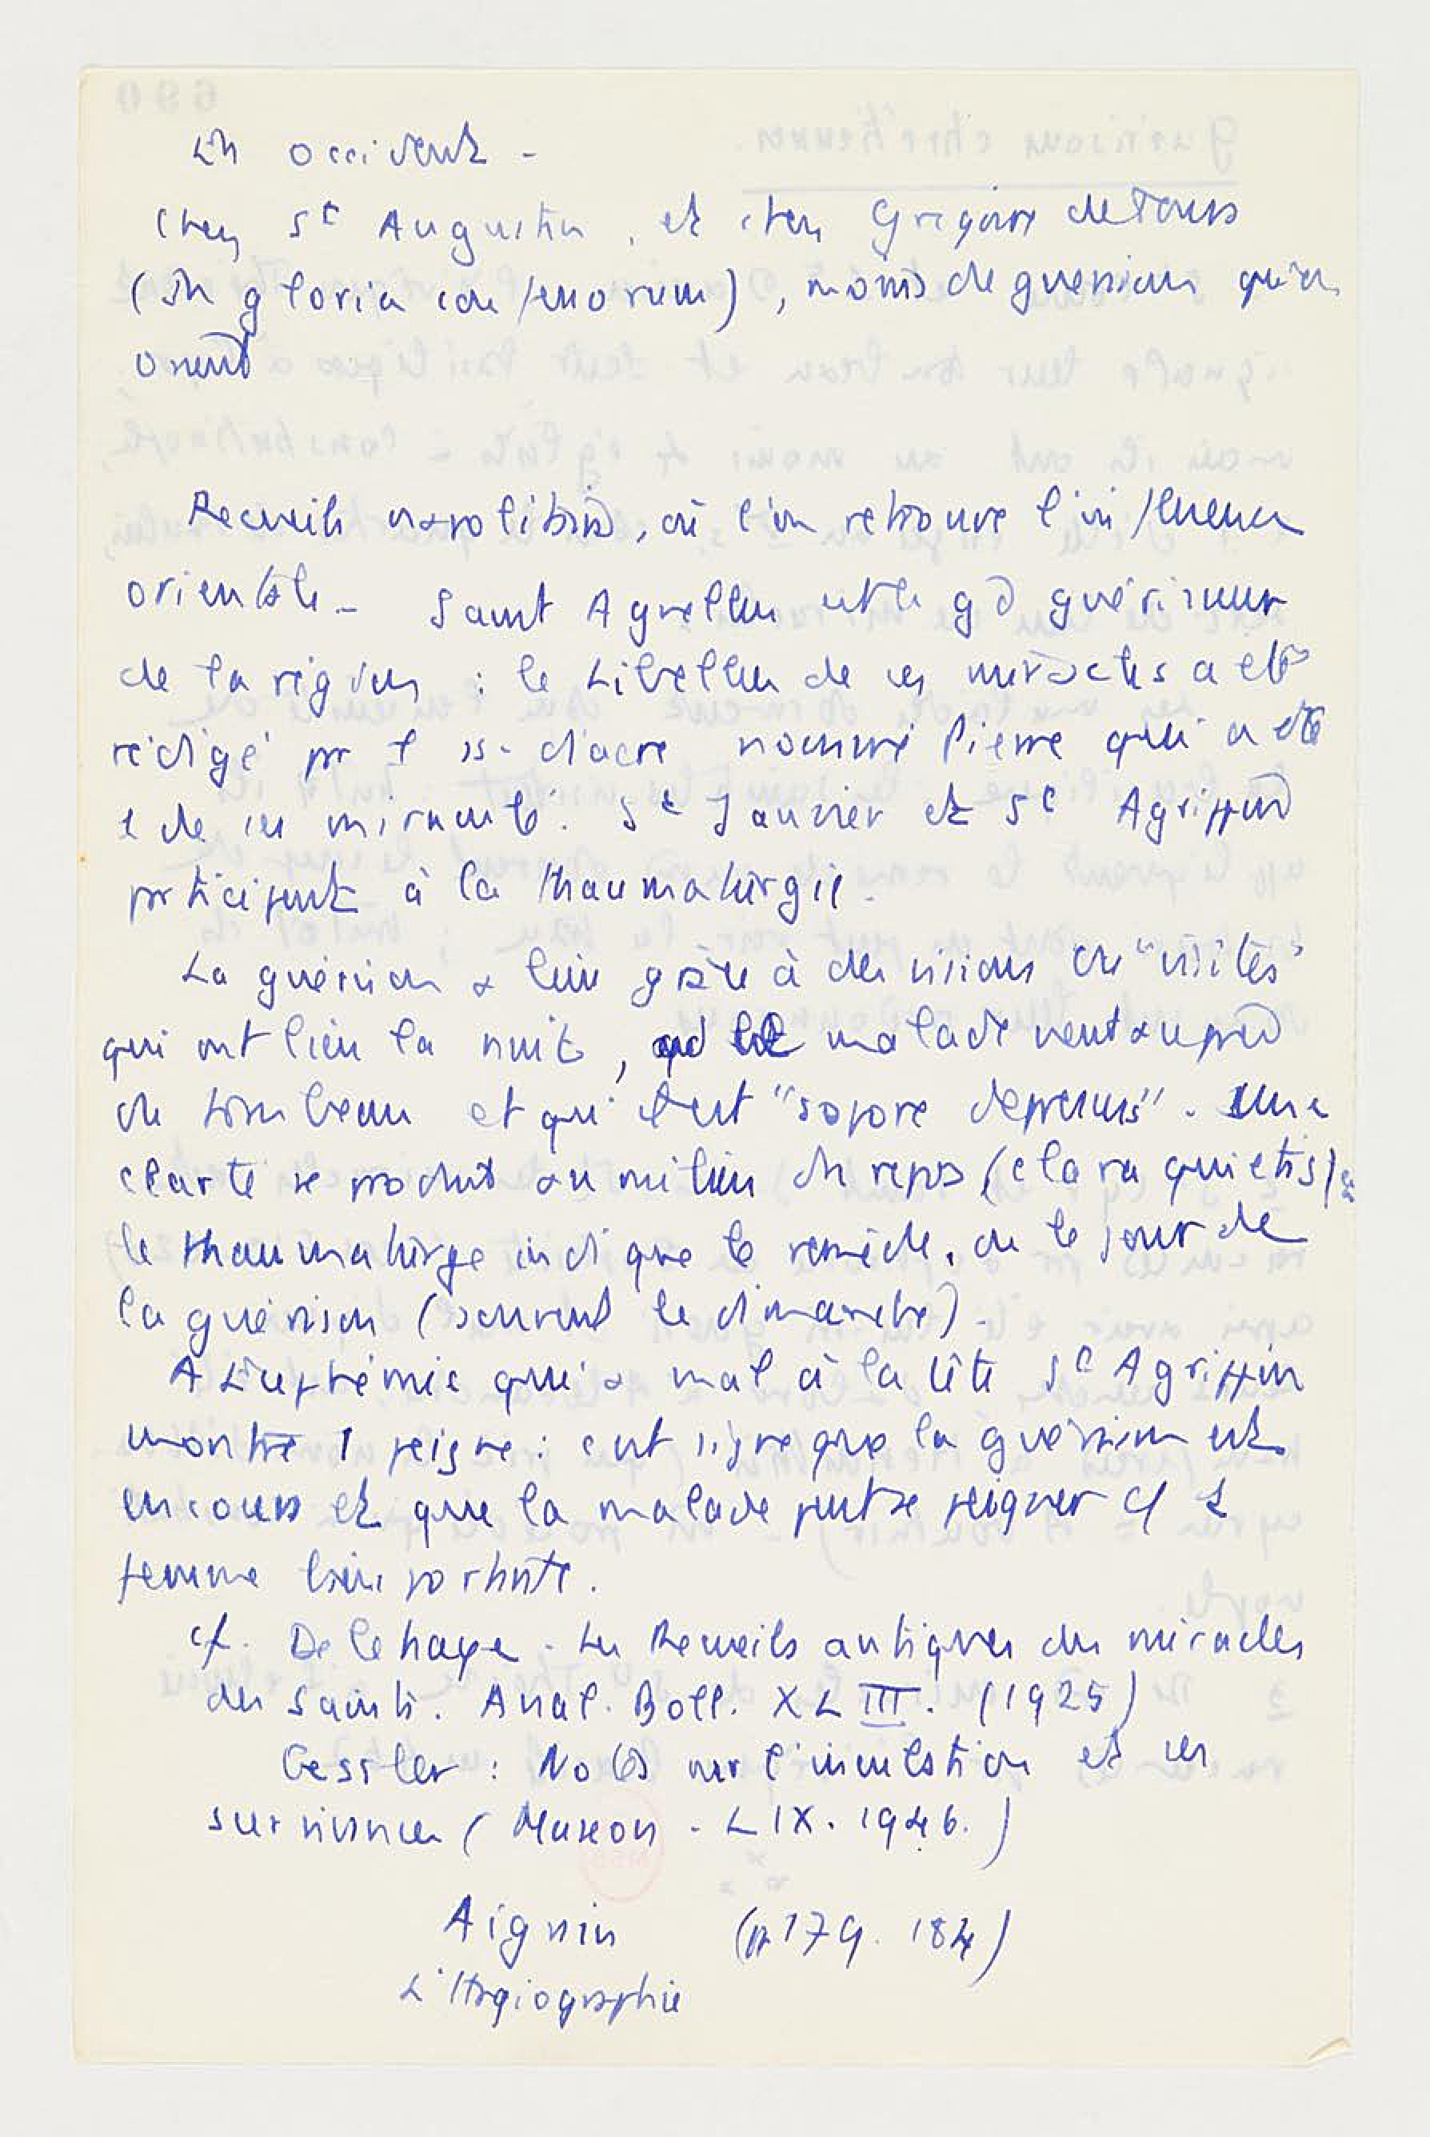 En occident -
Chez St Augustin, et chez Grégoire de Tours
(In gloria confessorum), moins de guérisons qu'en
orient
Recueils napolitains, où l'on retrouve l'influence
orientale - Saint Agnellus est le gd guérisseur
de la région : le Libellus de ses miracles a été
rédigé pr 1 ss-diacre nommé Pierre qui a été
1 de ses miraculé. St Janvier et St Agrippin
prticipent à la thaumaturgie.
La guérison a lieu grâce à des visions ou "visites"
qui ont lieu la nuit, qd le malade vient auprès
du tombeau et qu'il est "sopore depressus". Une
clarté se produit au milieu du repos (clara quietis) &
le thaumaturge indique le remède, ou le jour de
la guérison (souvent le dimanche).
A Euphémie qui a mal à la tête St Agrippin
montre 1 peigne : c'est signe que la guérison est
en cours et que la malade peut se peigner cf 1
femme bien portante.
cf. Delehaye - Les Recueils antiques des miracles
des saints. Anal. Boll. XLIII. (1925)
Gessler : Notes sur l'incubation et ses
survivances (Museon - LIX. 1946.)
Aigrain (p 179. 184)
L'Hagiographie